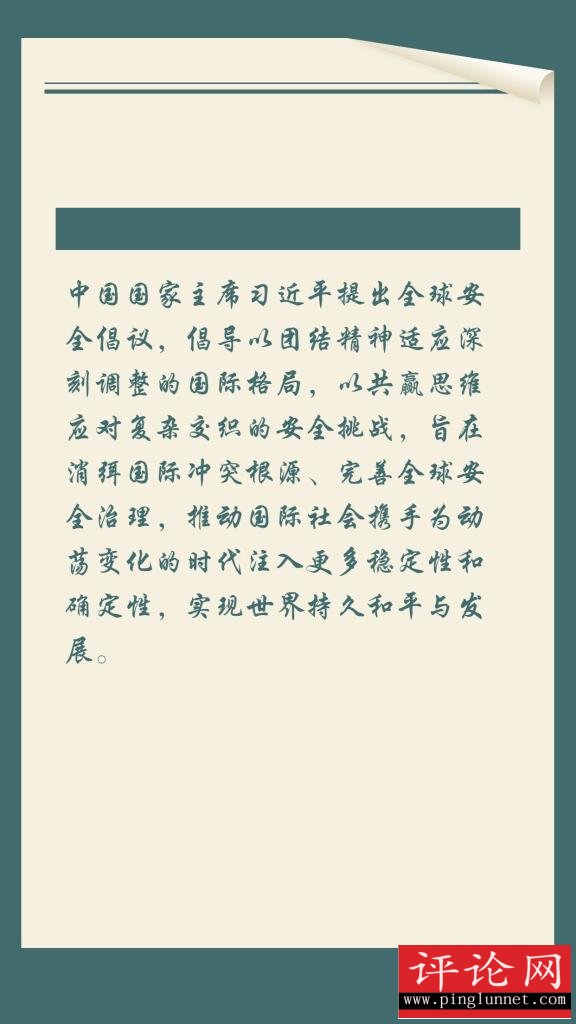 中国国家主席习近平提出全球安
全倡议，倡导以团结精神适应深
刻调整的国际格局，以共赢思维
应对复杂交织的安全挑战，旨在
消弭国际冲突根源、完善全球安
全治理，推动国际社会携手为动
荡变化的时代注入更多稳定性和
确定性，实现世界持久和平与发
展。
评论网
www.pinglunnet.com